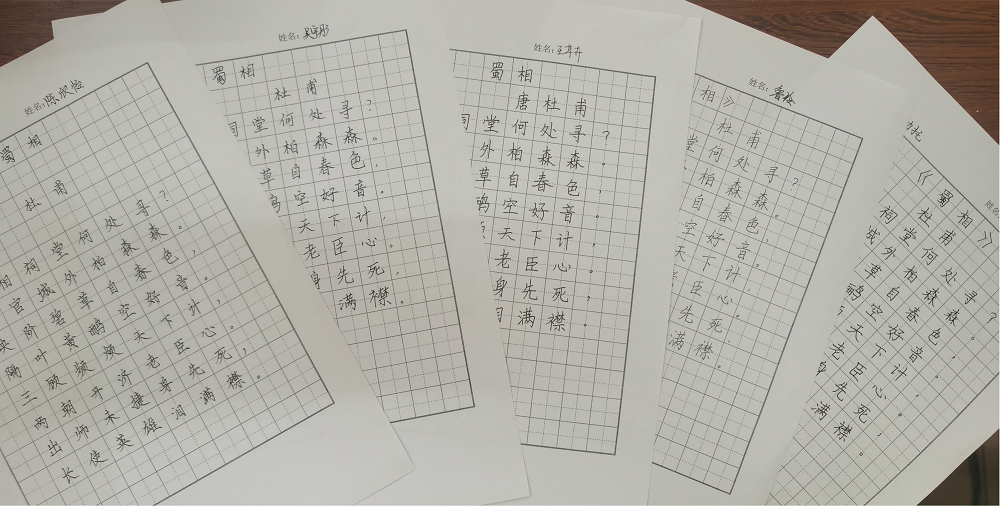 姓名：陈欣怡
蜀相
杜甫
相祠堂何处寻？
官城外柏森森。
映阶碧草自春色，
隔叶黄鹂空好音。
三顾频烦天下计，
两朝开济老臣心。
出师未捷身先死，
长使英雄泪满襟。
姓名：
蜀相
杜甫
祠堂何处寻？
外柏森森。
草自春色，
鹂空好音。
天下计，
老臣心。
身先死，
满襟。
姓名：
蜀相
唐杜甫
祠堂何处寻？
外柏森森。
草自春色，
鹂空好音。
天下计，
老臣心。
身先死，
泪满襟。
姓名：
相》
杜甫
堂何处寻？
柏森森。
自春色，
空好音。
天下计，
老臣心。
先死，
满襟。
姓名
《蜀相》
杜甫
祠堂何处寻？
城外柏森森。
草自春色，
鹂空好音。
天下计，
老臣心。
身先死，
满襟。